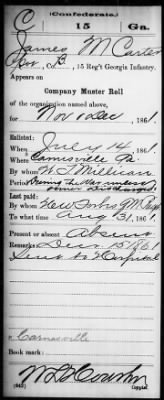 (Confederate.)
C 15 Ga.
James M Carter
Co. B, 15 Reg't Georgia Infantry.
Appears on
Company Muster Roll
of the organization named above,
for Nov & Dec, 1861.
Enlisted:
When July 14, 1861.
Where Carnisville Ga.
By whom W. T. Millican
Period During the War unless
sooner discharged
Last paid:
By whom
To what time Aug 31, 1861.
Present or absent Absent
Remarks: Dec 15 1861
Sent to Hospital
Carnesville
Book mark:
(642)
Copyist.